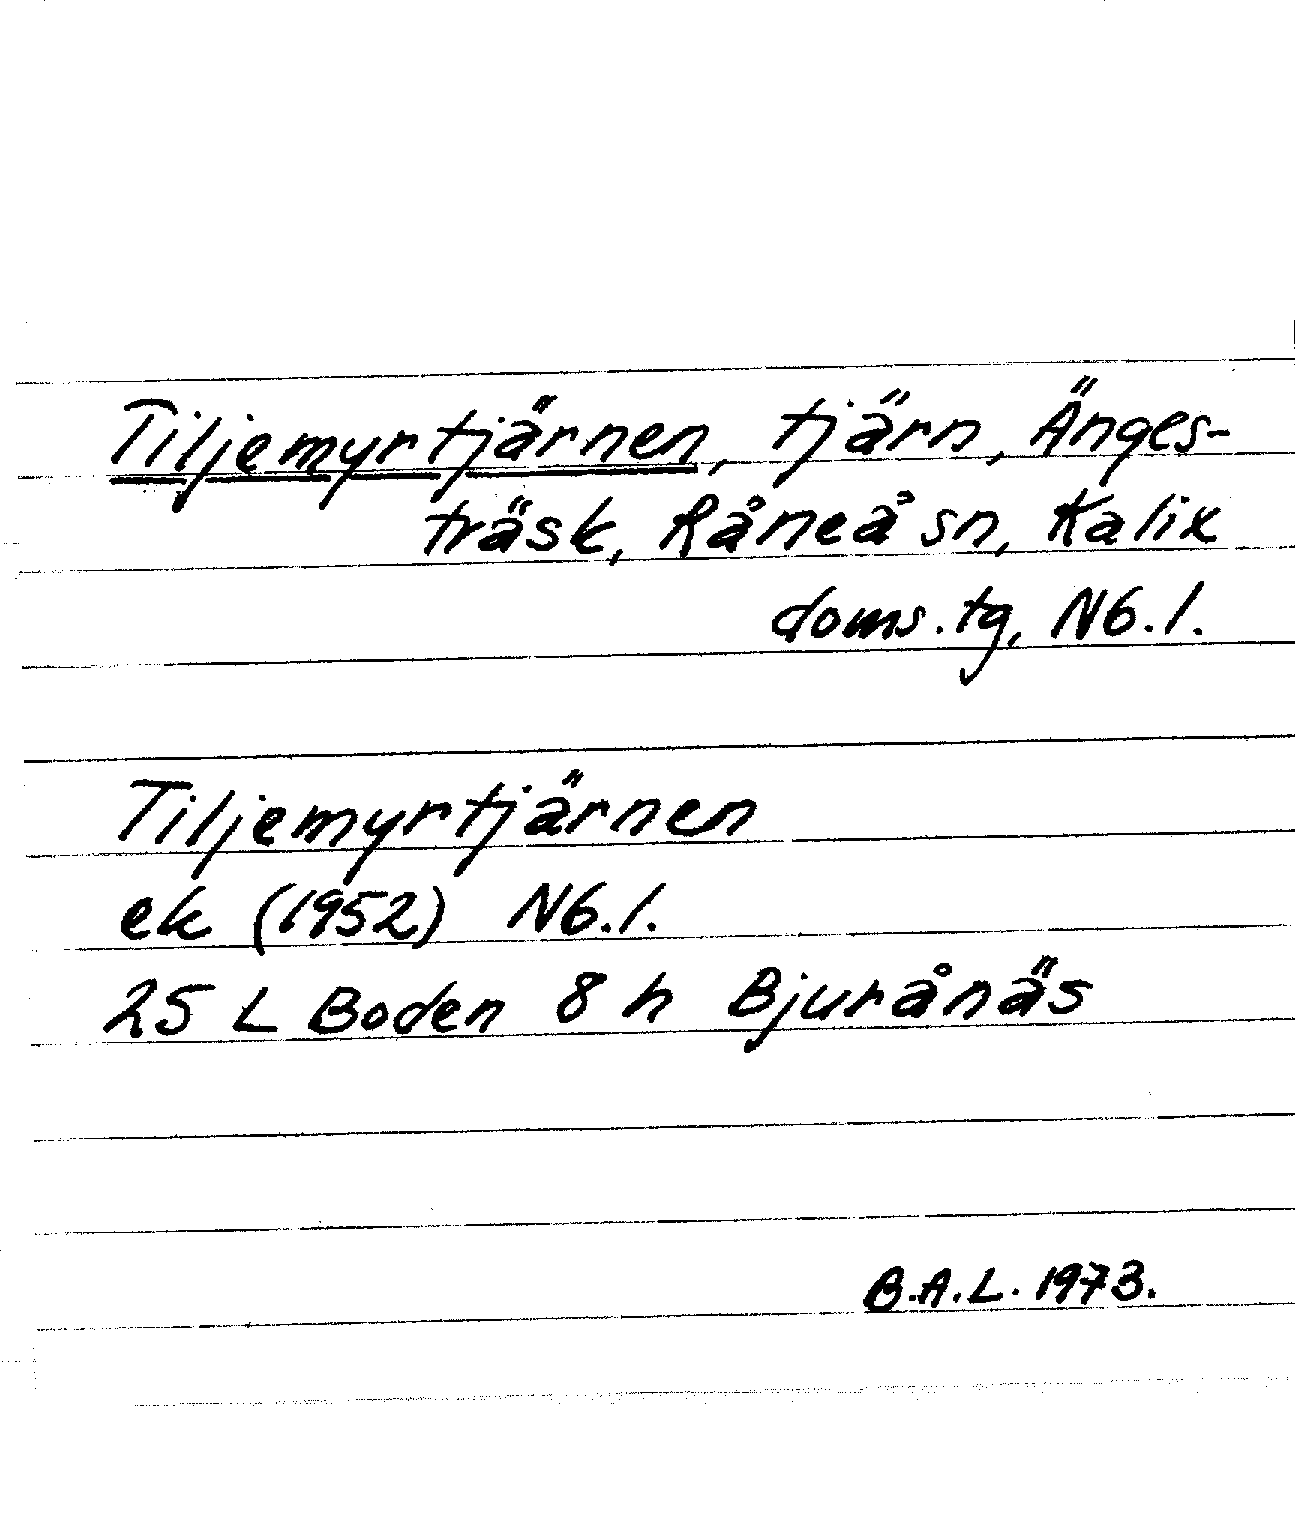 Tiljemyrtjärnen, tjärn, Änges-
träsk, Råneå sn, Kalix
doms.tg, N6.1.
Tiljemyrtjärnen
ek (1952) N6.1.
25 L Boden 8 h Bjurånäs
B.A.L. 1973.